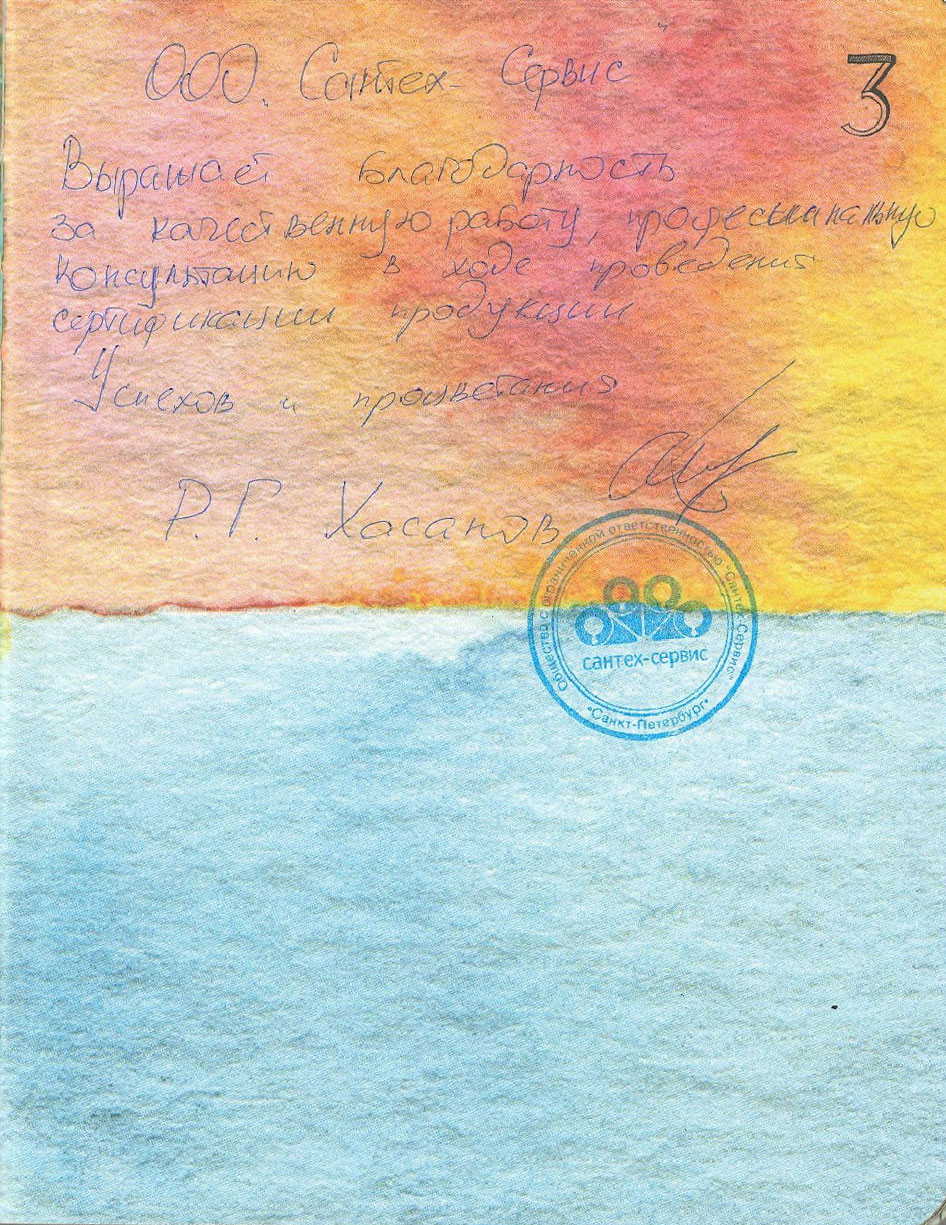 ООО. Сантех- Сервис"
3
Выражает благодарность
за качественную работу, професианальную
консультацию в ходе проведения
сертификации продукции
Успехов и процветания
Р.Г. Хасанов
Общество с ограниченной ответственностью "Сантех-Сервис"
сантех-сервис
•Санкт-Петербург•